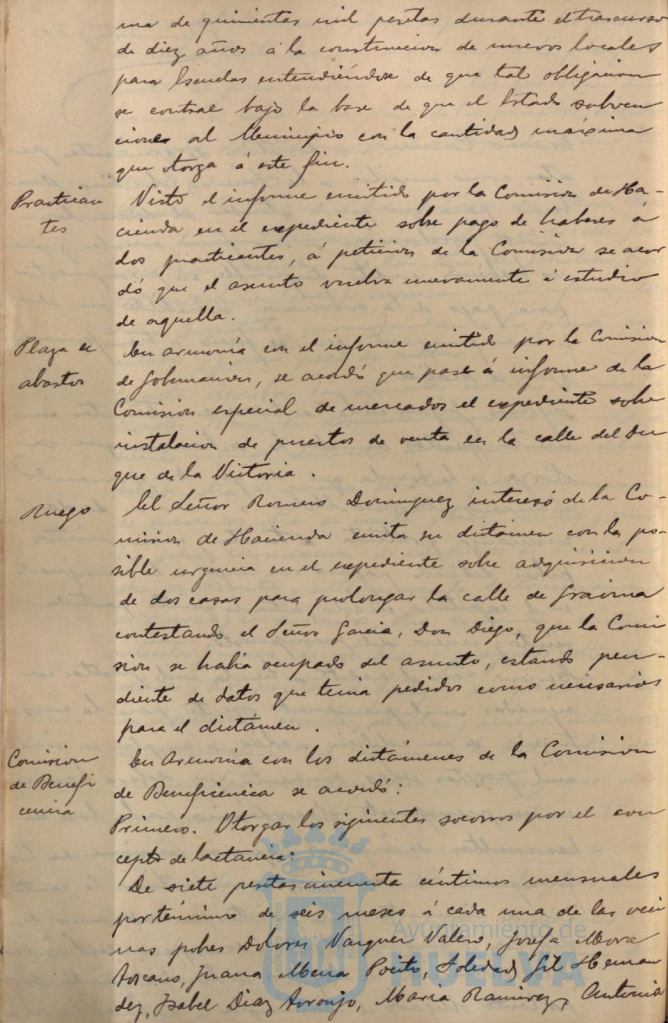 ma de quinientas mil pesetas durante el trascurso
de diez años á la construccion de nuevos locales
para Escuelas entendiéndose de que tal obligacion
se contrae bajo la base de que el Estado subven
cione al Municipio con la cantidad máxima
que otorga á este fin.
Practican
tes
Visto el informe emitido por la Comision de Ha-
cienda en el expediente sobre pago de haberes á
dos practicantes, á peticion de la Comision se acor
dó que el asunto vuelva nuevamente á estudio
de aquella.
Plaza de
abastos
En armonía con el informe emitido por la Comision
de Gobernacion, se acordó que pase á informe de la
Comision especial de mercados el expediente sobre
instalacion de puestos de venta en la calle del Du
que de la Victoria.
Ruego
El Señor Romero Dominguez interesó de la Co-
mision de Hacienda emita su dictámen con la po-
sible urgencia en el expediente sobre adquisicion
de dos casas para prolongar la calle de Gravina
contestando el Señor Garcia, Don Diego, que la Comi
sion se habia ocupado del asunto, estando pen-
diente de datos que tenia pedidos como necesarios
para el dictámen.
Comision
de Benefi
cencia
En armonía con los dictámenes de la Comision
de Beneficencia se acordó:
Primero. Otorgar los siguientes socorros por el con
cepto de lactancia:
De siete pesetas cincuenta céntimos mensuales
por término de seis meses á cada una de las veci
nas pobres Dolores Vazquez Valero, Josefa Mora
Toscano, Juana Mena Poeito, Soledad Gil Hernan
dez, Isabel Diaz Araujo, Maria Ramirez, Antonia
Ayuntamiento de
HUELVA